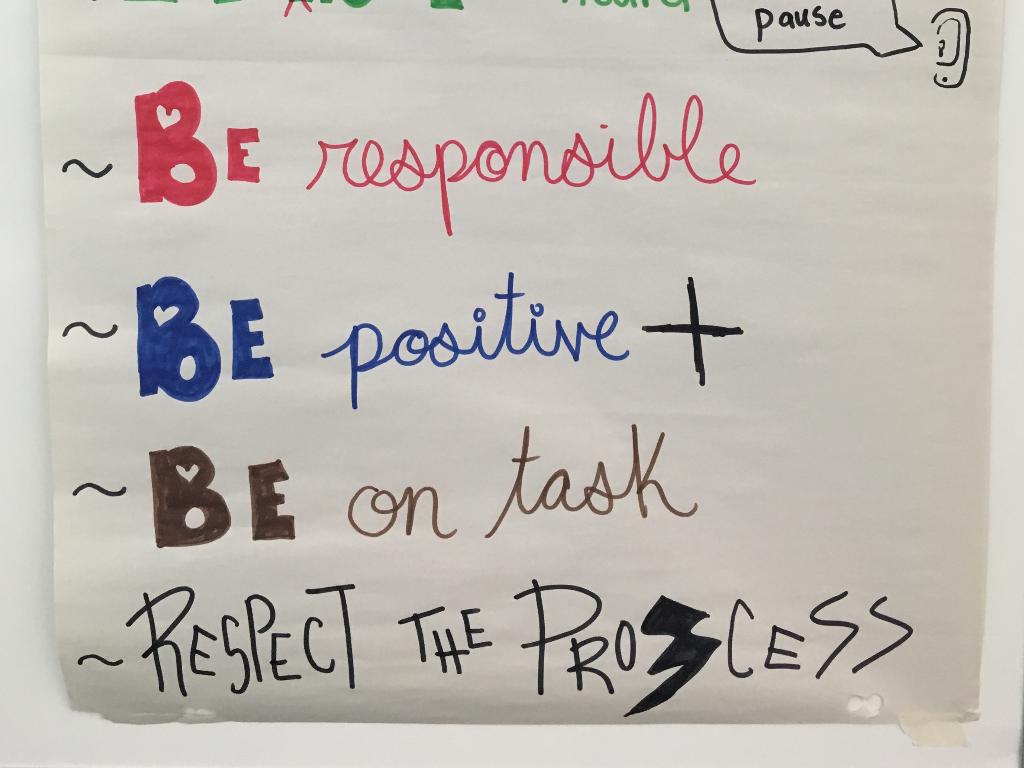 pause
~ BE responsible
~ BE positive +
~ BE on task
~ RESPECT THE PROCESS